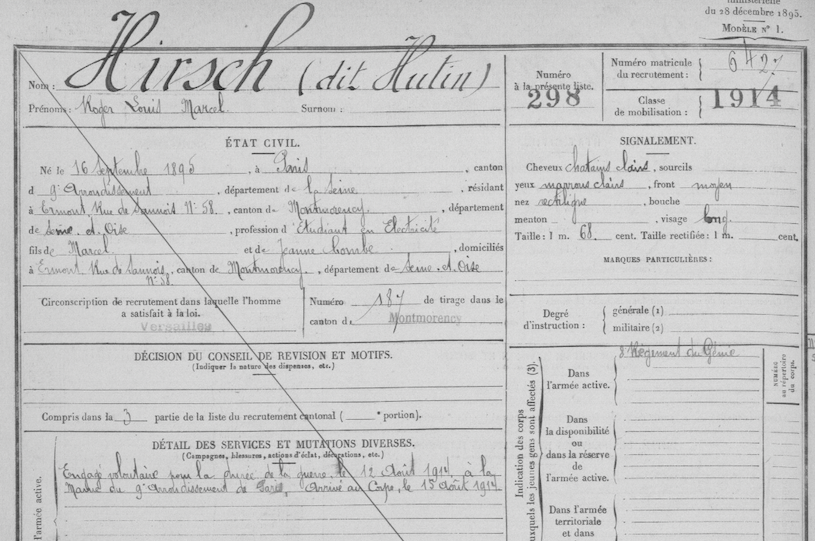 ministérielle
du 28 décembre 1895.
MODÈLE Nº 1.
Nom : Hirsch (dit Hutin)
Prénoms : Roger Louis Marcel Surnom :
Numéro
à la présente liste.
298
Numéro matricule
du recrutement : 642
Classe
de mobilisation : 1914
ÉTAT CIVIL.
Né le 16 Septembre 1895, à Paris, canton
d 9e Arrondissement, département de la Seine, résidant
à Ermont Rue de Sannois Nº 58, canton de Montmorency, département
de Seine et Oise, profession d'Etudiant en Electricité
fils de Marcel et de Jeanne, domiciliés
à Ermont Rue de Sannois Nº 58, canton de Montmorency, département de Seine et Oise
SIGNALEMENT.
Cheveux chatains clairs, sourcils
yeux marrons clairs, front moyen
nez rectiligne, bouche
menton, visage long
Taille : 1 m. 68 cent. Taille rectifiée : 1 m. cent.
MARQUES PARTICULIÈRES :
Circonscription de recrutement dans laquelle l'homme
a satisfait à la loi.
Versailles
Numéro 187 de tirage dans le
canton de Montmorency
Degré
d'instruction :
générale (1)
militaire (2)
DÉCISION DU CONSEIL DE REVISION ET MOTIFS.
(Indiquer la nature des dispenses, etc.)
Compris dans la 3 partie de la liste du recrutement cantonal ( e portion).
DÉTAIL DES SERVICES ET MUTATIONS DIVERSES.
(Campagnes, blessures, actions d'éclat, décorations, etc.)
Engagé volontaire pour la durée de la guerre, le 12 Août 1914, à la
Mairie du 9e Arrondissement de Paris, Arrivé au Corps, le 15 Août 1914
l'armée active.
Indication des corps
auxquels les jeunes gens sont affectés (3).
Dans
l'armée active.
Régiment du Génie
NUMÉRO
au répertoire
du corps.
Dans
la disponibilité
ou
dans la réserve
de
l'armée active.
Dans l'armée
territoriale
et dans